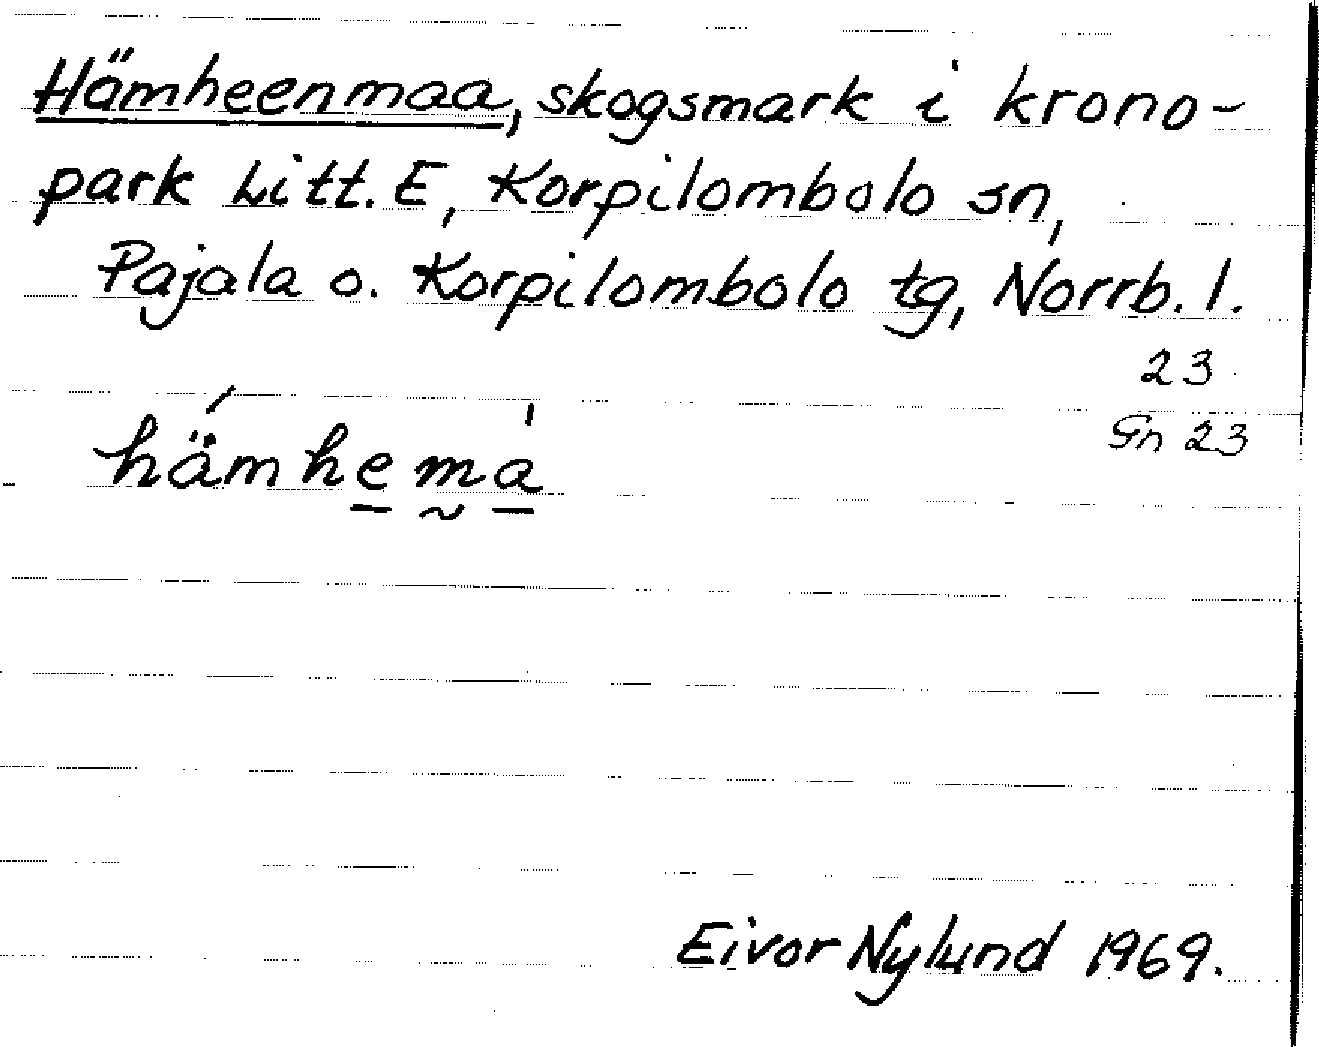 Hämheenmaa, skogsmark i krono-
park Litt. E, Korpilombolo sn,
Pajala o. Korpilombolo tg, Norrb. l.
23
Gn 23
hä́mhe̱m̰a̱̍
Eivor Nylund 1969.